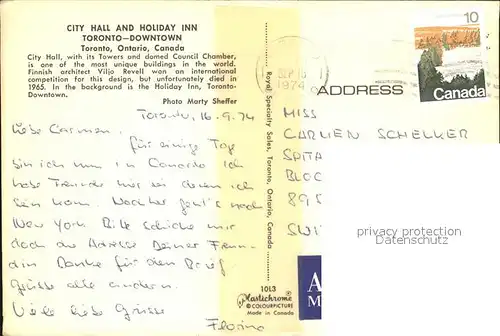 CITY HALL AND HOLIDAY INN
TORONTO—DOWNTOWN
Toronto, Ontario, Canada
City Hall, with its Towers and domed Council Chamber,
is one of the most unique buildings in the world.
Finnish architect Viljo Revell won an international
competition for this design, but unfortunately died in
1965. In the background is the Holiday Inn, Toronto-
Downtown.
Photo Marty Sheffer
Toronto, 16.9.74
Liebe Carmen,
für einige Tag
bin ich nun in Canada. Ich
habe Freunde hier bei denen ich
sein kann. Nachher geht's nach
New York. Bitte schicke mir
doch die Adresse Deiner Freun-
din Danke für den Brief
Grüsse alle andern.
Viele liebe Grüsse
Royal Specialty Sales, Toronto, Ontario, Canada
10L3
Plastichrome
COLOURPICTURE
Made in Canada
SEP 16
1974
10
Canada
ADDRESS
MISS
CARMEN SCHELKER
SPITA
BLOC
895
SWI
A
M
privacy protection
Datenschutz